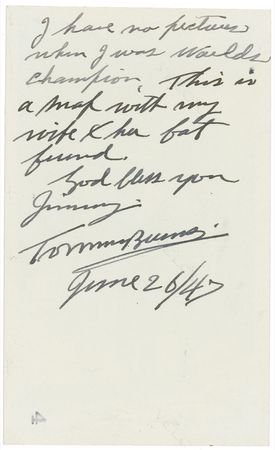 I have no pictures
when I was Worlds
Champion, This is
a snap with my
wife & her fat
friend.
God bless you
Jimmy.
Tommy Burns.
June 26/47